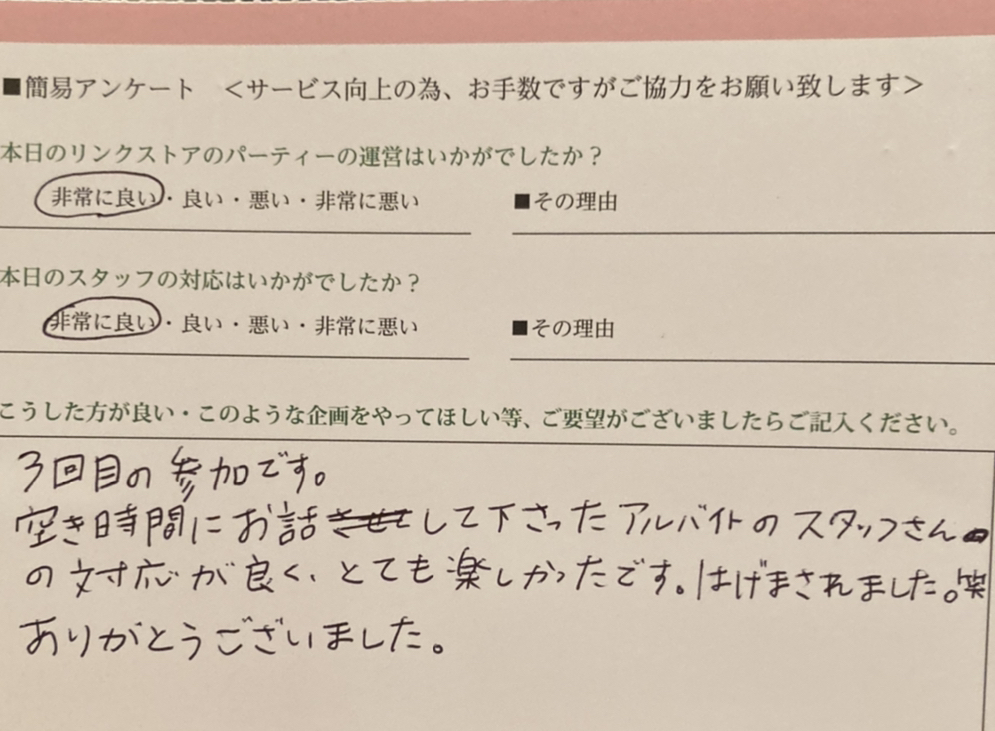 ■簡易アンケート ＜サービス向上の為、お手数ですがご協力をお願い致します＞
本日のリンクストアのパーティーの運営はいかがでしたか？
非常に良い・良い・悪い・非常に悪い ■その理由
本日のスタッフの対応はいかがでしたか？
非常に良い・良い・悪い・非常に悪い ■その理由
こうした方が良い・このような企画をやってほしい等、ご要望がございましたらご記入ください。
3回目の参加です。
空き時間にお話して下さったアルバイトのスタッフさん
の対応が良く、とても楽しかったです。はげまされました。笑
ありがとうございました。